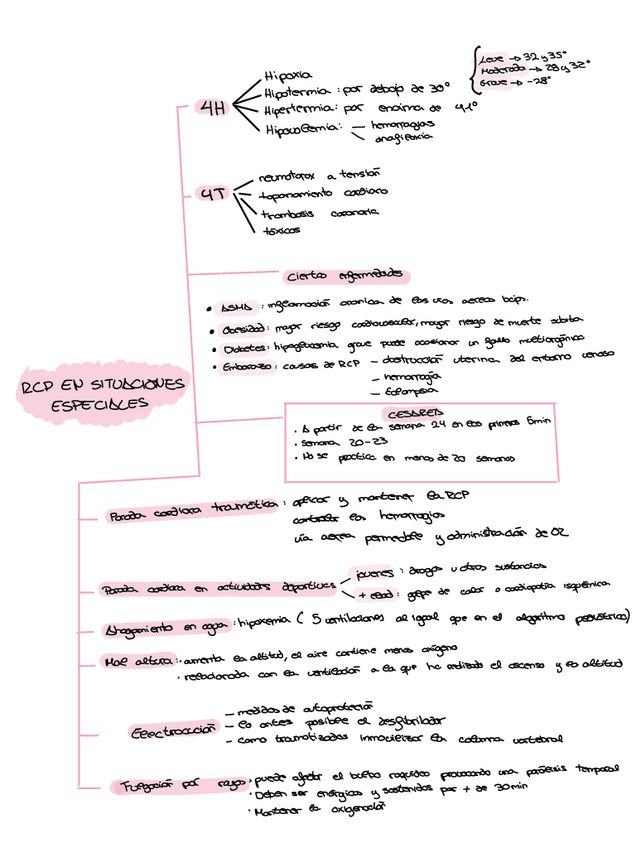 RCP EN SITUACIONES
ESPECIALES
4H
Hipoxia
Hipotermia : por debajo de 30°
Leve → 32 y 35°
Moderada → 28 y 32°
Grave → -28°
Hipertermia : por encima de 41°
Hipovolemia: — hemorragias
anafilaxia
4T
neumotorax a tensión
taponamiento cardiaco
trombosis coronaria
tóxicos
Ciertas enfermedades
• ASMA : inflamación cronica de las vias aereas bajas.
• Obesidad : mayor riesgo cardiovascular, mayor riesgo de muerte subita
• Diabetes : hipoglucemia grave puede ocasionar un fallo multiorgánico
• Embarazo : causas de RCP — obstrucción uterina del retorno venoso
— hemorragia
— Eclampsia
CESAREA
• A partir de la semana 24 en los primeros 5min
• Semana 20-23
• No se practica en menos de 20 semanas
Parada cardiaca traumática : aplicar y mantener la RCP
controlar las hemorragias
vía aerea permeable y administración de O2
Parada cardiaca en actividades deportivas
jovenes : drogas u otras sustancias
+ edad : golpe de calor o cardiopatia isquémica
Ahogamiento en agua : hipoxemia ( 5 ventilaciones al igual que en el algoritmo pediátrico)
Mal altura : • aumenta la altitud, el aire contiene menos oxigeno
• relacionada con la ventilación a la que ha realizado el ascenso y la altitud
Electrocución
— medidas de autoprotección
— lo antes posible el desfibrilador
— como traumatizados inmovilizar la columna vertebral
Fulguración por rayo • puede afectar el bulbo raquideo provocando una parálisis temporal
• Deben ser enérgicas y sostenidas por + de 30min
• Mantener la oxigenación